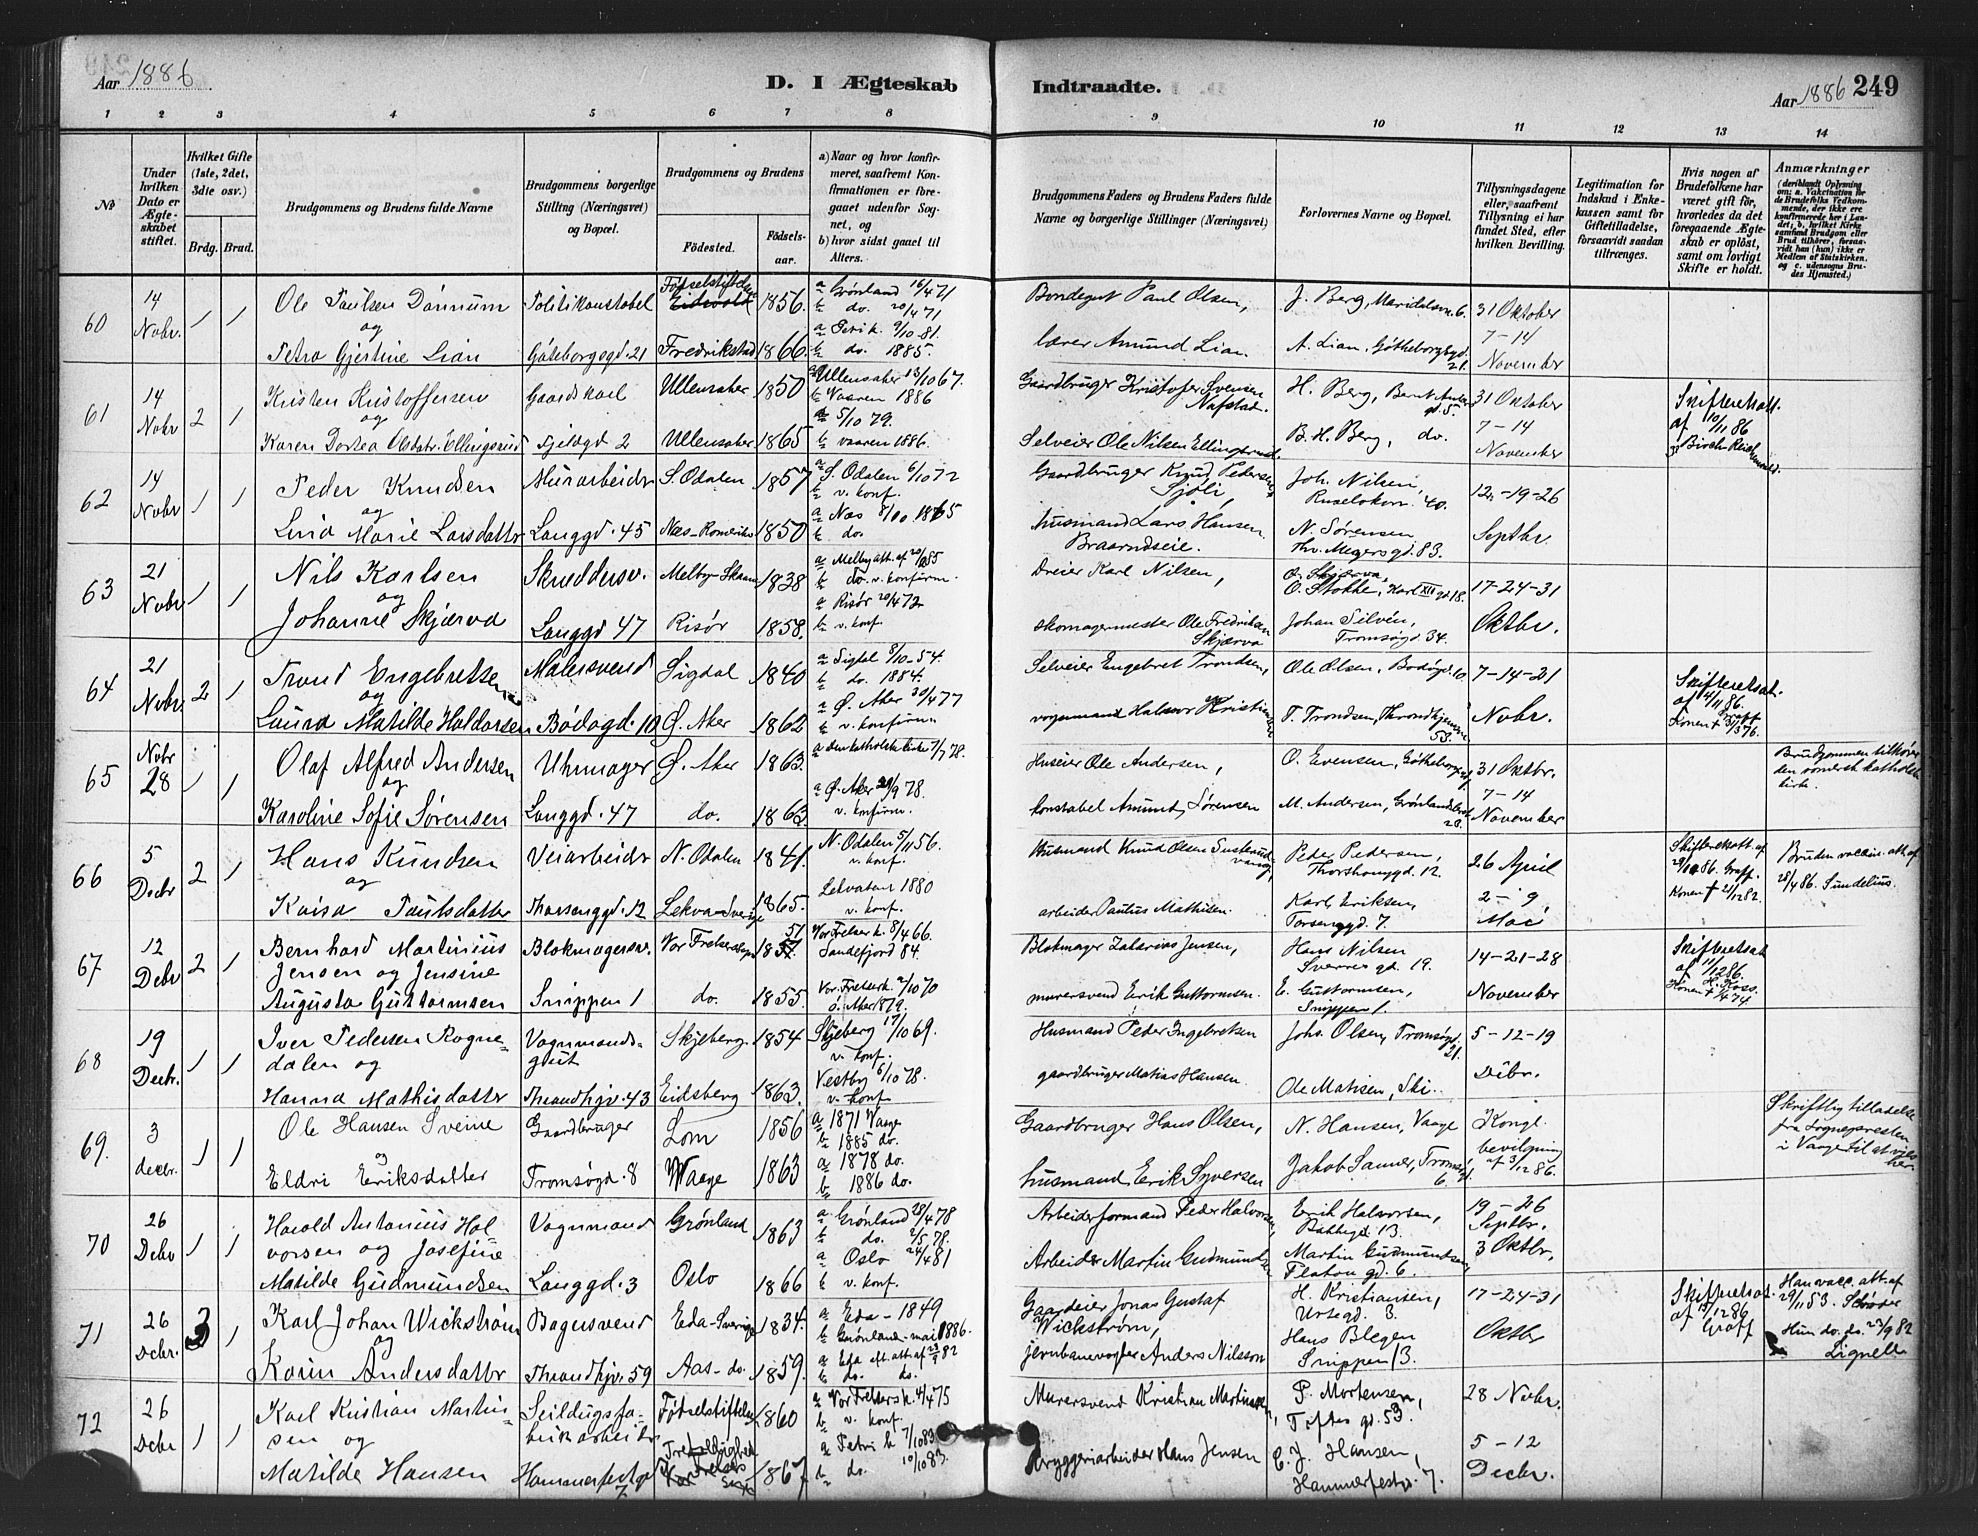 Aar 1886
D. I Ægteskab Indtraadte.
Aar 1886 249
1 2 3 4 5 6 7 8 9 10 11 12 13 14
№
Under hvilken Dato er Ægteskabet stiftet.
Hvilket Gifte (1ste, 2det, 3die osv.)
Brdg. Brud.
Brudgommens og Brudens fulde Navne
Brudgommens borgerlige Stilling (Næringsvei) og Bopæl.
Brudgommens og Brudens
Fødested. Fødselsaar.
a) Naar og hvor konfirmeret, saafremt Konfirmationen er foregaaet udenfor Sognet, og
b) hvor sidst gaaet til Alters.
Brudgommens Faders og Brudens Faders fulde Navne og borgerlige Stillinger (Næringsvei)
Forlovernes Navne og Bopæl.
Tillysningsdagene eller, saafremt Tillysning ei har fundet Sted, efter hvilken Bevilling.
Legitimation for Indskud i Enkekassen samt for Giftetilladelse, forsaavidt saadan tiltrænges.
Hvis nogen af Brudefolkene har været gift før, hvorledes da det foregaaende Ægteskab er opløst, samt om lovligt Skifte er holdt.
Anmærkninger
60 14 Novbr. 1 1 Ole Paulsen Dønnum og Politikonstabel Fødselsstiftelsen 1856. a Grønland 16/4 71 b do. 20/4 71 Bondegut Paul Olsen, J. Berg, Maridalsv. 6. 31 Oktober
Petra Gjertine Lian Göteborgsgd. 21 Fredrikstad 1866. a Petri k. 9/10 81. b do. 1885. lærer Amund Lian. A. Lian, Götheborggd. 21. 7-14 November
61 14 Novbr 2 1 Kristen Kristoffersen og Gaardskarl Ullensaker 1850 a Ullensaker 13/10 67. b Vaaren 1886 Gaardbruger Kristofer Svensen Nafstad. H. Berg, Bernt Ankers gd. 5. 31 Oktober Skifteretsatt. af 12/11 86
Karen Dortea Olsdatr. Ellingsrud 2 Ullensaker 1865 a 5/10 79. b vaaren 1886. Selveier Ole Nilsen Ellingsrud. B. H. Berg, do. 7-14 November
62 14 Novbr 1 1 Peder Knudsen og Murarbeider S. Odalen 1857 a S. Odalen 6/10 72 b v. konf. Gaardbruger Knud Pedersen Sjøli, Joh. Nilsen, Ruseløkvn. 40. 12-19-26
Lina Marie Larsdatter Langgd. 45 Næs-Romerike 1850 a Næs 8/10 1865 b do. husmand Lars Hansen Braarudseie. N. Sørensen Thv. Meyers gd. 83. Septbr.
63 21 Novbr 1 1 Nils Karlsen og Skræddersv. Melby-Skaane 1838 a Melby att. af b do. v. konfirm. Dreier Karl Nilsen, O. Stokke, Karl XII gd. 18. 17-24-31
Johanne Skjærva Langgd 47 Risör 1858. a Risör 20/4 72 b v. konf. skomagermester Ole Fredriksen Skjærva Johan Silvén, Tromsøgd. 34. Oktbr.
64 21 Novbr. 2 1 Trond Engebretsen og Malersvend Sigdal 1840 a Sigdal 8/10-54. b do. 1884. Selveier Engebret Trondsen, Ole Olsen, Bodøgd. 10 7-14-21 Skifteretsat. af 4/11 86. Graff Konen †
Laura Matilde Halvorsen Bodøgd. 10 Ø. Aker 1862 a Ø. Aker 30/4 77 b v. konfirm. vognmand Halvor Kristiansen T. Trondsen, Throndhjemsv. 53. Novbr.
65 Novbr 28 1 1 Olaf Alfred Andersen og Uhrmager Ø. Aker 1863. a den katholske kirke 7/7 78. Huseier Ole Andersen, O. Evensen, Götheborggd 31 Oktbr. Brudgommen tilhører den romersk katholske kirke.
Karoline Sofie Sørensen Langgd. 47 do. 1863. a Ø. Aker 29/9 78. v. konfirm. konstabel Amund Sørensen M. Andersen, Grønlandsleret 28. 7-14 November
66 5 Decbr 2 1 Hans Knudsen og Veiarbeider N. Odalen 1841. N. Odalen 5/11 56. v. konf. Husmand Knud Olsen Peder Pedersen, Thorshauggd. 12. 26 April Skifteretsatt. af Graff. Konen † 21/12 82. Bruden vaccin. att. af 28/4 86. Sundelius.
Kaisa Paulsdatter Thorshauggd. 12 Lekva-Sverige 1865. Lekvatne 1880 v. konf. arbeider Paulus Mathisen. Karl Eriksen, Torsenggd. 7. 2-9 Mai
67 12 Debr 2 1 Bernhard Martinius Jensen og Jensine Blokmagersv. Vor Frelsersogn 1851 Vor Frelser k. 8/4 66. Sandefjord 84. Blokmager Zakarias Jensen, Hans Nilsen Sverres gd. 19. 14-21-28 Skifteretsat af H. Koss. Konen †
Augusta Guttormsen Snippen 1 do. 1855. Vor Frelserk. 2/10 70 ö. Aker 1879. murersvend Erik Guttormsen. E. Guttormsen, Snippen 1. November
68 19 Decbr. 1 1 Iver Pedersen Rognedalen og Vognmandsgut Skjeberg. 1854 Skjeberg 17/10 69. v. konf. Husmand Peder Ingebretsen Johs. Olsen, Tromsøgd. 21. 5-12-19
Hanna Mathisdatter Thrandhjv. 43 Eidsberg 1863. Vestby 6/10 78. v. konf. gaardbruger Matias Hansen. Ole Matisen, Ski. Debr.
69. 3 decbr. 1 1 Ole Hansen Sveine og Gaardbruger Lom 1856 a 1871 Vaage b 1885 do. Gaardbruger Hans Olsen, N. Hansen, Vaage Kongl. bevilgning af 3/12 86. Skriftlig tilladelse fra Sognepresten i Vaage til at vies her.
Eldri Eriksdatter Tromsøgd. 8 Waage 1863 a 1878 do. b 1886 do. husmand Erik Syversen Jakob Sanner, Tromsøgd. 6.
70 26 Debr 1 1 Harald Antonius Halvorsen og Josefine Vognmand Grønland 1863 a Grønland 28/4 78 b do. 2/5 78. Arbeidsformand Peder Halvorsen, Erik Halvorsen, Bakkegd. 13. 19-26 Septbr.
Matilde Gudmundsen Langgd. 3 Oslo 1866 a Oslo 24/4 81 b v. konf. Arbeider Martin Gudmundsen Martin Gudmundsen, Platou gd. 6. 3 Oktbr.
71 26 Debr. 3 1 Karl Johan Wickström og Bagersvend Eda-Sverige 1834. a Eda-1849 b Grønland-mai 1886. Gaardeier Jonas Gustaf Wickström, H. Kristiansen, Urtegd. 3. 17-24-31 Skifteretsat. af 15/12 86 Graff Han vacc. att. af 29/11 53. Schrøder
Karin Andersdatter Thrandhjv. 59 Aas-do. 1859. a Eda eft. att. af 23/9 82 b do. do. jernbanevogter Anders Nilsson Hans Blegen Snippen 13. Oktbr Hun do. do. 23/9 82 Lignell
72 26 Debr 1 1 Karl Kristian Martinsen og Seildugsfabrikarbeider Fødselsstiftelsen 1860 a Vor Frelsers k. 4/4 75 b v. konf. Murersvend Kristian Martinsen, P. Mortensen, Tøftes gd. 53. 28 Novbr.
Matilde Hansen Hammerfestgd 7 Vor Frelsers Sogn 1867 a Petri k 7/10 83 b do. 10/10 83. Bryggeriarbeider Hans Jensen C. J. Hansen, Hammerfestgd. 7. 5-12 Decbr.